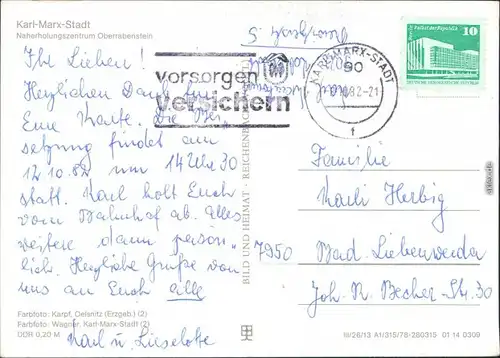 Karl-Marx-Stadt
Naherholungszentrum Oberrabenstein
Ihr Lieben!
Herzlichen Dank für
Eure Karte. Die Bei-
setzung findet am
12.10.82 um 14 Uhr 30
statt. Karl holt Euch
vom Bahnhof ab. Alles
weitere dann persön-
lich. Herzliche Grüße von
uns an Euch alle
Karl u. Lieselotte
Farbfoto: Karpf, Oelsnitz (Erzgeb.) (2)
Farbfoto: Wagner, Karl-Marx-Stadt (2)
DDR 0,20 M
BILD UND HEIMAT · REICHENBACH
vorsorgen
versichern
KARL-MARX-STADT
82-21
Palast der Republik
10
DEUTSCHE DEMOKRATISCHE REPUBLIK
Familie
Karli Herbig
7950 Bad Liebenwerda
Joh. R. Becher-Str. 30
III/26/13 A1/315/78-280315 01 14 0309